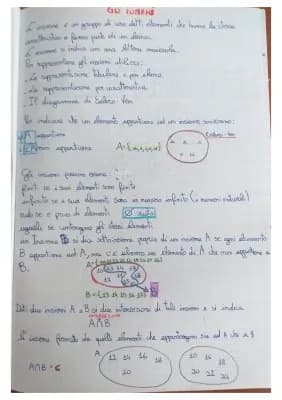 GLI INSIEMI
L'insieme è un gruppo di cose detti elementi che hanno la stessa
caratteristica e fanno parte di un elenco.
L'insieme si indica con una lettera maiuscola.
Per rappresentare gli insiemi utilizzo:
- La rappresentazione tabulare o per elenco
- La rappresentazione per caratteristica
- Il diagramma di Eulero Ven
Per indicare che un elemento appartiene ad un insieme scriviamo:
appartiene
non appartiene
Gli insiemi possono essere:
finiti se i suoi elementi sono finiti
infinito se i suoi elementi sono in numero infinito (i numeri naturali)
nullo se è privo di elementi Ø
uguali se contengono gli stessi elementi
un Insieme B si dice sottoinsieme proprio di un insieme A se ogni elemento
B appartiene ad A, ma c'è almeno un elemento di A che non appartiene a
B.
B = {13 14 15 16 17}
Dati due insiemi A e B si dice intersezione di tali insiemi e si indica
A∩B
l'insieme formato da quelli elementi che appartengono sia ad A che a B
A 12 14 16 18 20
10 16 18
20
A∩B =